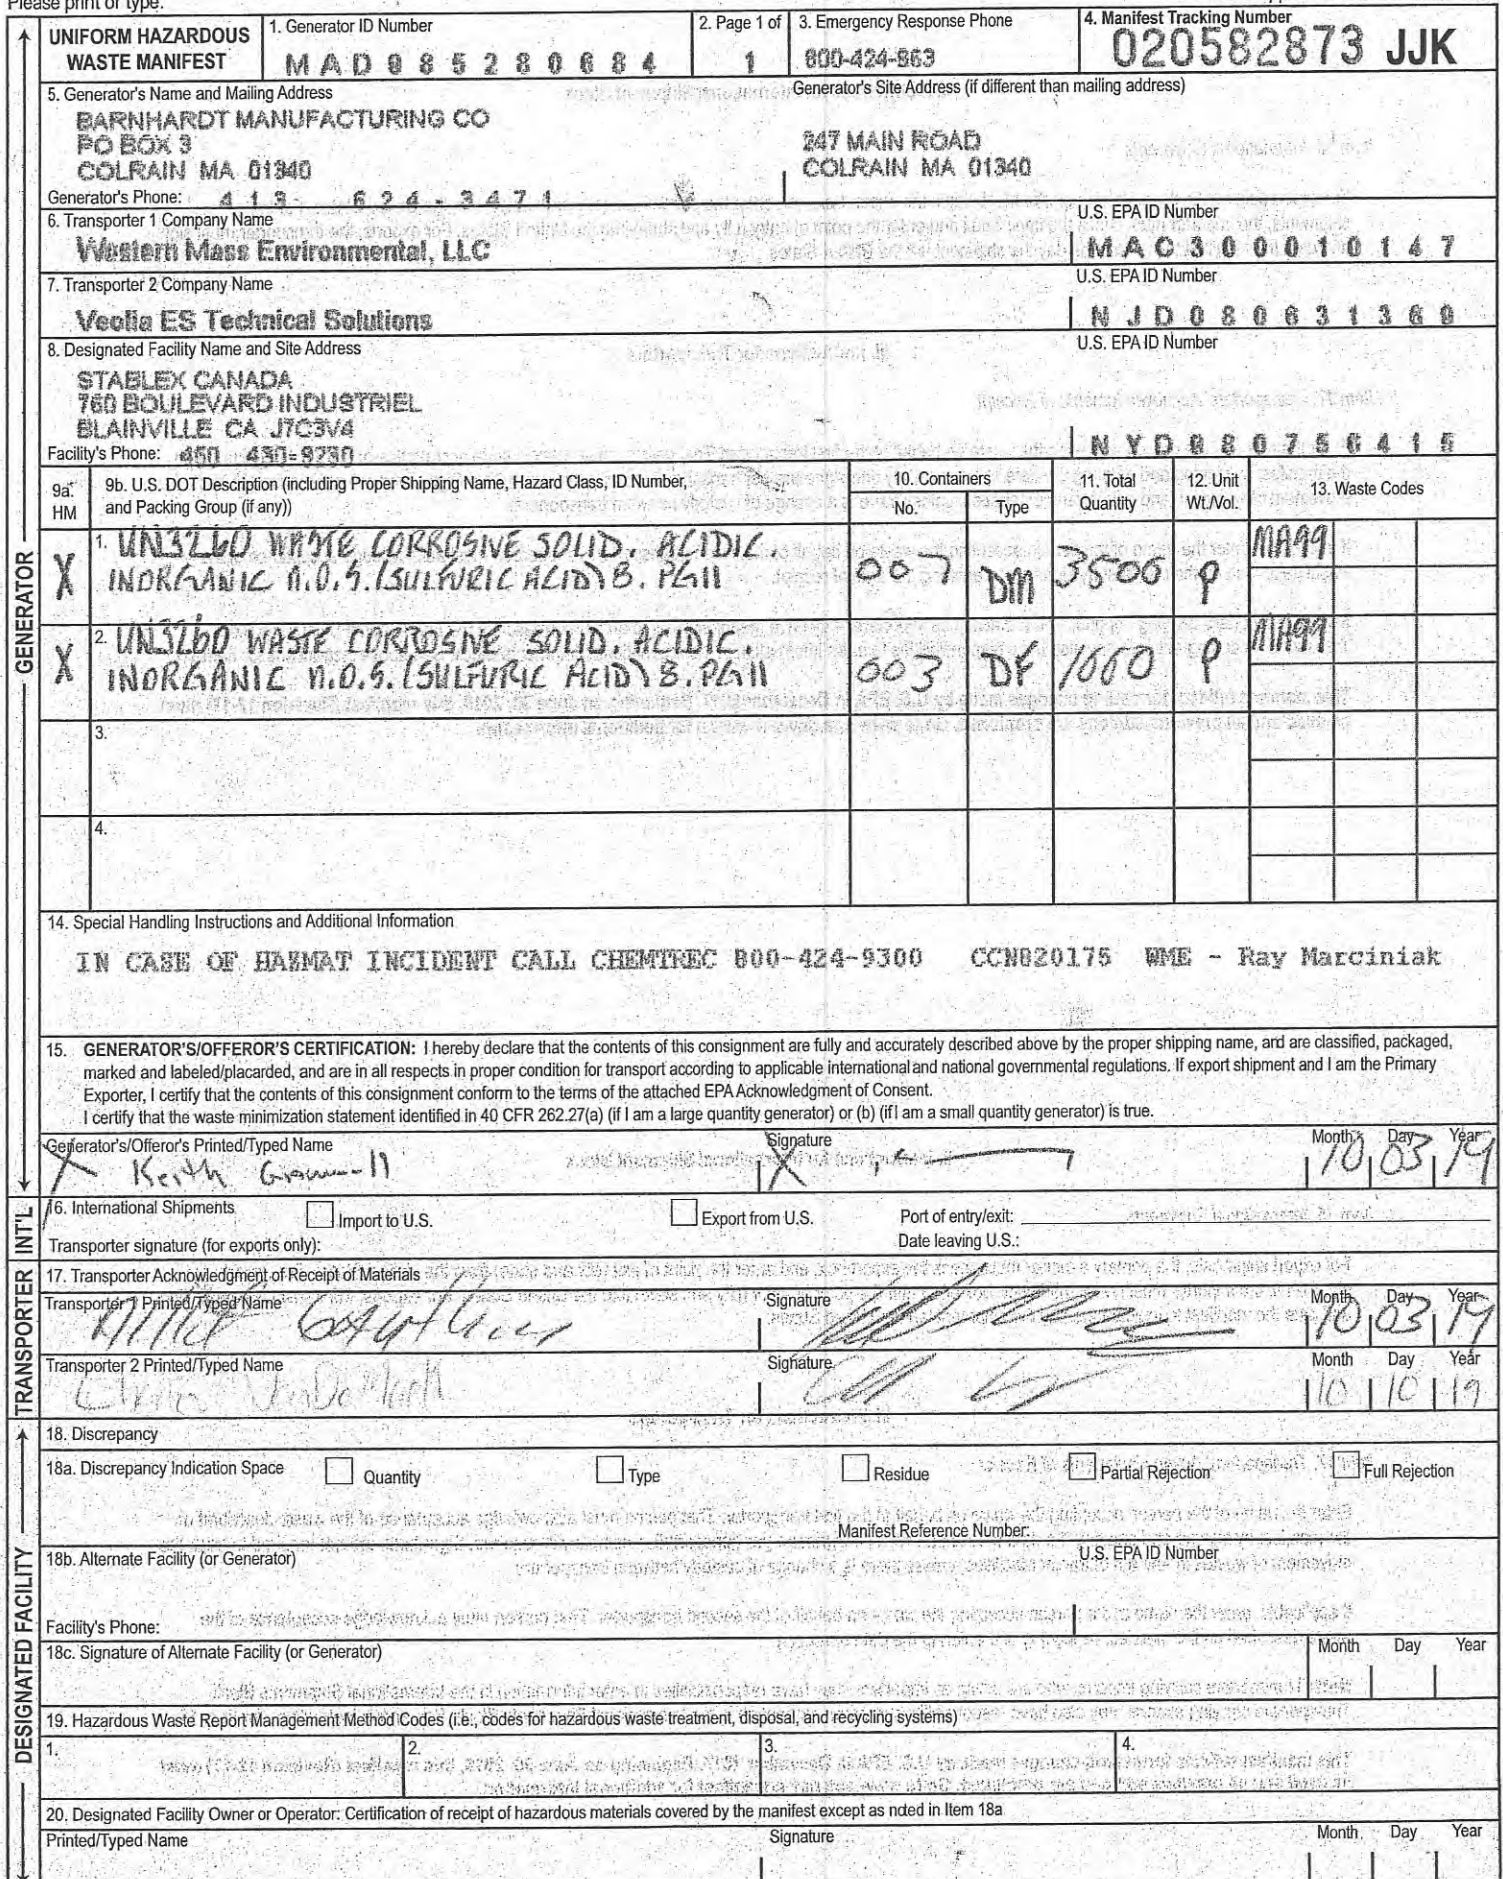 Please print or type.
UNIFORM HAZARDOUS WASTE MANIFEST
1. Generator ID Number
MAD985280684
2. Page 1 of
1
3. Emergency Response Phone
800-424-863
4. Manifest Tracking Number
020582873 JJK
5. Generator's Name and Mailing Address
Generator's Site Address (if different than mailing address)
BARNHARDT MANUFACTURING CO
PO BOX 3
247 MAIN ROAD
COLRAIN MA 01340
COLRAIN MA 01340
Generator's Phone: 413 624-3471
6. Transporter 1 Company Name
U.S. EPA ID Number
Western Mass Environmental, LLC
MAC300010147
7. Transporter 2 Company Name
U.S. EPA ID Number
Veolia ES Technical Solutions
NJD080631369
8. Designated Facility Name and Site Address
U.S. EPA ID Number
STABLEX CANADA
760 BOULEVARD INDUSTRIEL
BLAINVILLE CA J7C3V4
Facility's Phone: 450 430-9230
NYD980756415
9a. HM
9b. U.S. DOT Description (including Proper Shipping Name, Hazard Class, ID Number, and Packing Group (if any))
10. Containers
No.
Type
11. Total Quantity
12. Unit Wt./Vol.
13. Waste Codes
GENERATOR
X
1. UN3260 WASTE CORROSIVE SOLID. ACIDIC
INORGANIC N.O.S. (SULFURIC ACID) 8. PGII
007 DM 3500 P MA99
X
2. UN3260 WASTE CORROSIVE SOLID. ACIDIC.
INORGANIC N.O.S. (SULFURIC ACID) 8. PGII
003 DF 1000 P MA99
3.
4.
14. Special Handling Instructions and Additional Information
IN CASE OF HAZMAT INCIDENT CALL CHEMTREC 800-424-9300 CCN820175 WME - Ray Marciniak
15. GENERATOR'S/OFFEROR'S CERTIFICATION: I hereby declare that the contents of this consignment are fully and accurately described above by the proper shipping name, and are classified, packaged,
marked and labeled/placarded, and are in all respects in proper condition for transport according to applicable international and national governmental regulations. If export shipment and I am the Primary
Exporter, I certify that the contents of this consignment conform to the terms of the attached EPA Acknowledgment of Consent.
I certify that the waste minimization statement identified in 40 CFR 262.27(a) (if I am a large quantity generator) or (b) (if I am a small quantity generator) is true.
Generator's/Offeror's Printed/Typed Name
Signature
Month Day Year
X Keith
X
10 03 19
INT'L
16. International Shipments
Import to U.S.
Export from U.S.
Port of entry/exit:
Transporter signature (for exports only):
Date leaving U.S.:
TRANSPORTER
17. Transporter Acknowledgment of Receipt of Materials
Transporter 1 Printed/Typed Name
Signature
Month Day Year
10 03 19
Transporter 2 Printed/Typed Name
Signature
Month Day Year
10 10 19
DESIGNATED FACILITY
18. Discrepancy
18a. Discrepancy Indication Space
Quantity
Type
Residue
Partial Rejection
Full Rejection
Manifest Reference Number:
18b. Alternate Facility (or Generator)
U.S. EPA ID Number
Facility's Phone:
18c. Signature of Alternate Facility (or Generator)
Month Day Year
19. Hazardous Waste Report Management Method Codes (i.e., codes for hazardous waste treatment, disposal, and recycling systems)
1.
2.
3.
4.
20. Designated Facility Owner or Operator: Certification of receipt of hazardous materials covered by the manifest except as noted in Item 18a
Printed/Typed Name
Signature
Month Day Year